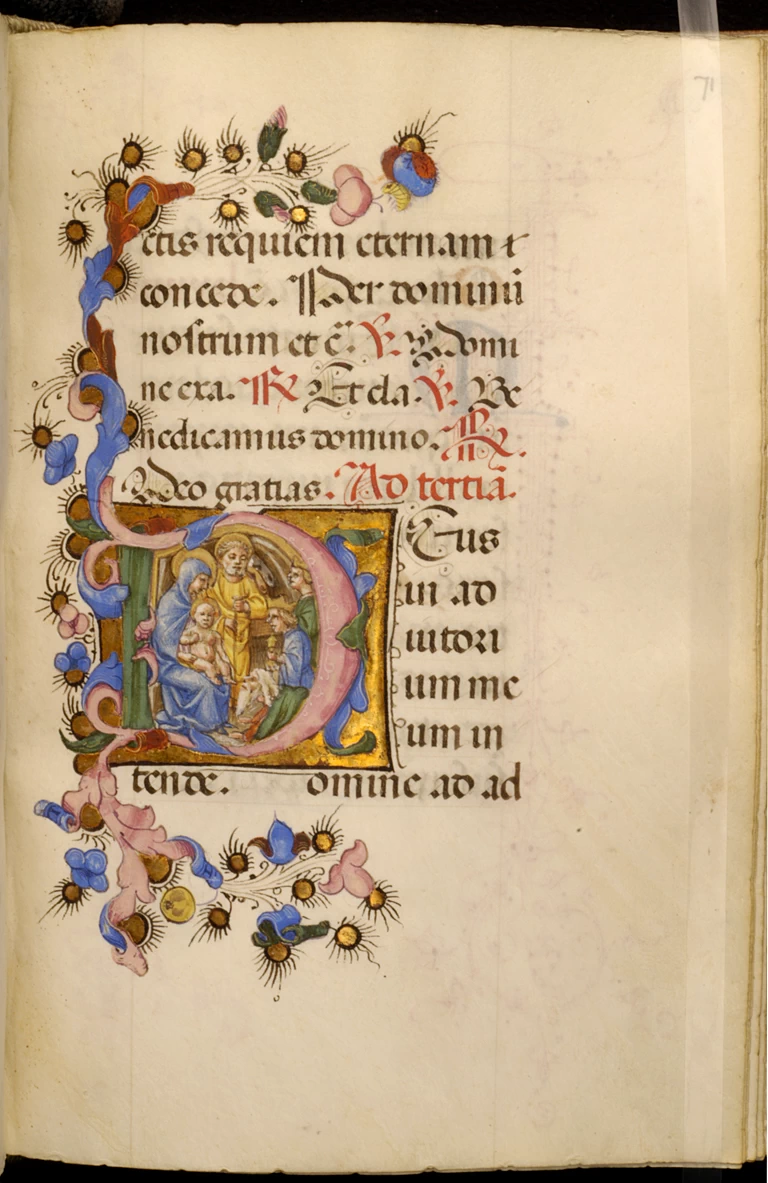 71
ctis requiem eternam ⁊
concede. Per dominū
nostrum et c̄. ℣. Domi
ne exa. ℟ Et cla. ℣. Be
nedicamus domino. ℟.
Deo gratias. Ad tertiā.
Deus
in ad
iutori
um me
um in
tende. omine ad ad